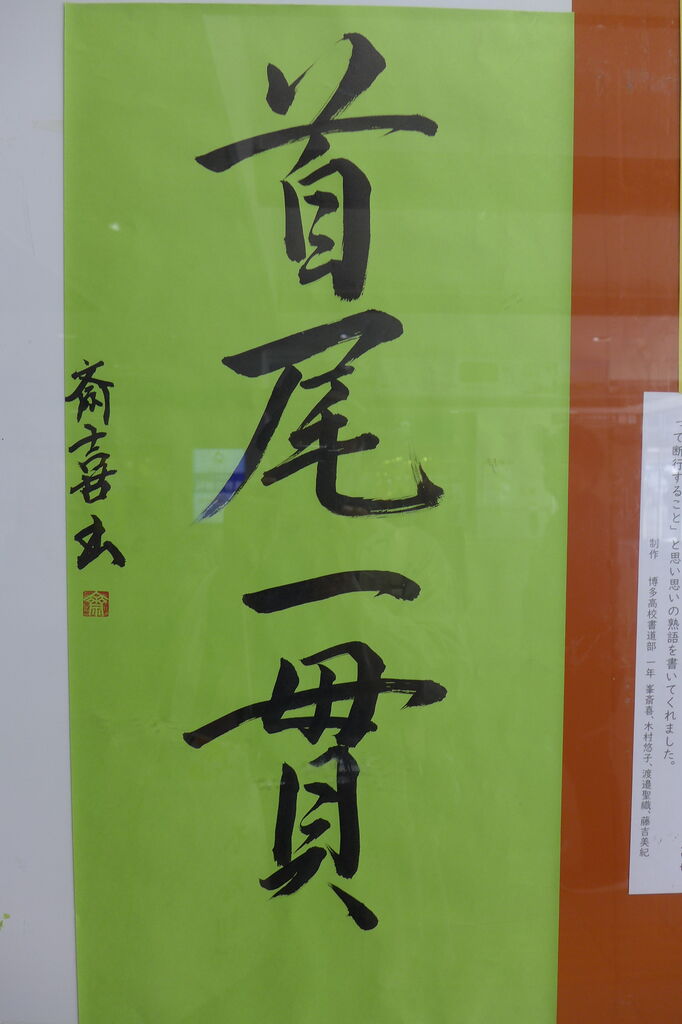 首尾一貫
斎喜書
斎
って断行すること」と思い思いの熟語を書いてくれました。
制作 博多高校書道部 一年 峯斎喜、木村悠子、渡邉聖織、藤吉美紀